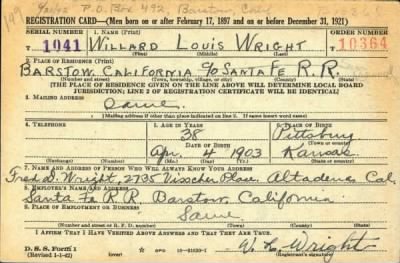 199 9/21/42 P.O. Box 492, Barstow Cal.
REGISTRATION CARD—(Men born on or after February 17, 1897 and on or before December 31, 1921)
SERIAL NUMBER 1. NAME (Print) ORDER NUMBER
T 1041 WILLARD LOUIS WRIGHT 10364
(First) (Middle) (Last)
2. PLACE OF RESIDENCE (Print)
BARSTOW, CALIFORNIA c/o SANTA FE R.R.
(Number and street) (Town, township, village, or city) (County) (State)
[THE PLACE OF RESIDENCE GIVEN ON THE LINE ABOVE WILL DETERMINE LOCAL BOARD
JURISDICTION; LINE 2 OF REGISTRATION CERTIFICATE WILL BE IDENTICAL]
3. MAILING ADDRESS
Same
[Mailing address if other than place indicated on line 2. If same insert word same]
4. TELEPHONE 5. AGE IN YEARS 6. PLACE OF BIRTH
38 Pittsburg
DATE OF BIRTH (Town or county)
Apr. 4 1903 Kansas
(Exchange) (Number) (Mo.) (Day) (Yr.) (State or country)
7. NAME AND ADDRESS OF PERSON WHO WILL ALWAYS KNOW YOUR ADDRESS
Fred D. Wright, 2735 Visscher Place, Altadena Cal.
8. EMPLOYER'S NAME AND ADDRESS
Santa Fe R.R. Barstow, California
9. PLACE OF EMPLOYMENT OR BUSINESS
Same
(Number and street or R. F. D. number) (Town) (County) (State)
I AFFIRM THAT I HAVE VERIFIED ABOVE ANSWERS AND THAT THEY ARE TRUE.
D. S. S. Form 1
(Revised 1-1-42) GPO 16—21630-1 W. L. Wright
(Registrant's signature)